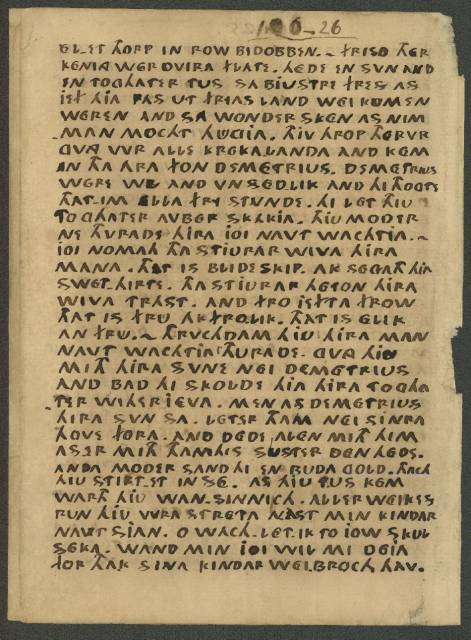 ELET THORP IN ROW BIDOBBEN.~ FRISO THER
KENING WER OVIRA FLATE. HEDE EN SVN AND
EN TOGHATER TUS. SA BIUSTRE FRES AS
IEF HJA PAS UT FRIAS LAND WEI KUMEN
WEREN AND SA WONDER SKEN AS NIM
MAN MOCHT HUGJA. THJU HROP THERVR
GVNG VVR ALLE KREKALANDA AND KEM
IN THA ARA FON DEMETRIUS. DEMETRIUS
WERE WL AND VNSEDLIK AND HI THOGTE
THAT-IM ELLA FRY STUNDE. HI LET THJU
TOGHATER AVBER SKAKIA. THJU MODER
NE THVRADE HIRA JOI NAVT WACHTJA.~
JOI NOMATH THA STIURAR WIVA HIRA
MANA. THAT IS BLIDESKIP. AK SEGATH HJA
SWET-HIRTE. THA STIURAR HETON HIRA
WIVA TRAST. AND FRO IEFTA FROW
THAT IS FRU AK FROLIK. THAT IS ELIK
AN FRU.~ THRVCHDAM HJU HIRA MAN
NAVT WACHTJA THURADE. GVNG HJU
MITH HIRA SVNE NEI DEMETRIUS
AND BAD HI SKOLDE HJA HIRA TOGHA
TER WITHER IEVA. MEN AS DEMETRIUS
HIRA SVN SA. LETER THAM NEI SINRA
HOVE FORA. AND DEDE ALEN MITH HIM
AS-ER MITH THAM HIS SUSTER DEN HEDE.
ANDA MODER SAND HI EN BUDA GOLD. THACH
HJU STIRT-ET IN SE. AS HJU TUS KEM
WARTH HJU WAN-SINNICH. ALLER WEIKES
RUN HJU VVRA STRETA NAST MIN KINDAR
NAVT SIAN. O WACH. LET IK TO IOW SKUL
SEKA. WAND MIN JOI WIL MI DEJA
FOR THAK SINA KINDAR WEI BROCH HAV.